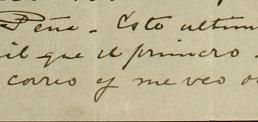 Peña - Esto ultim
il que el primero.
correo y me veo o